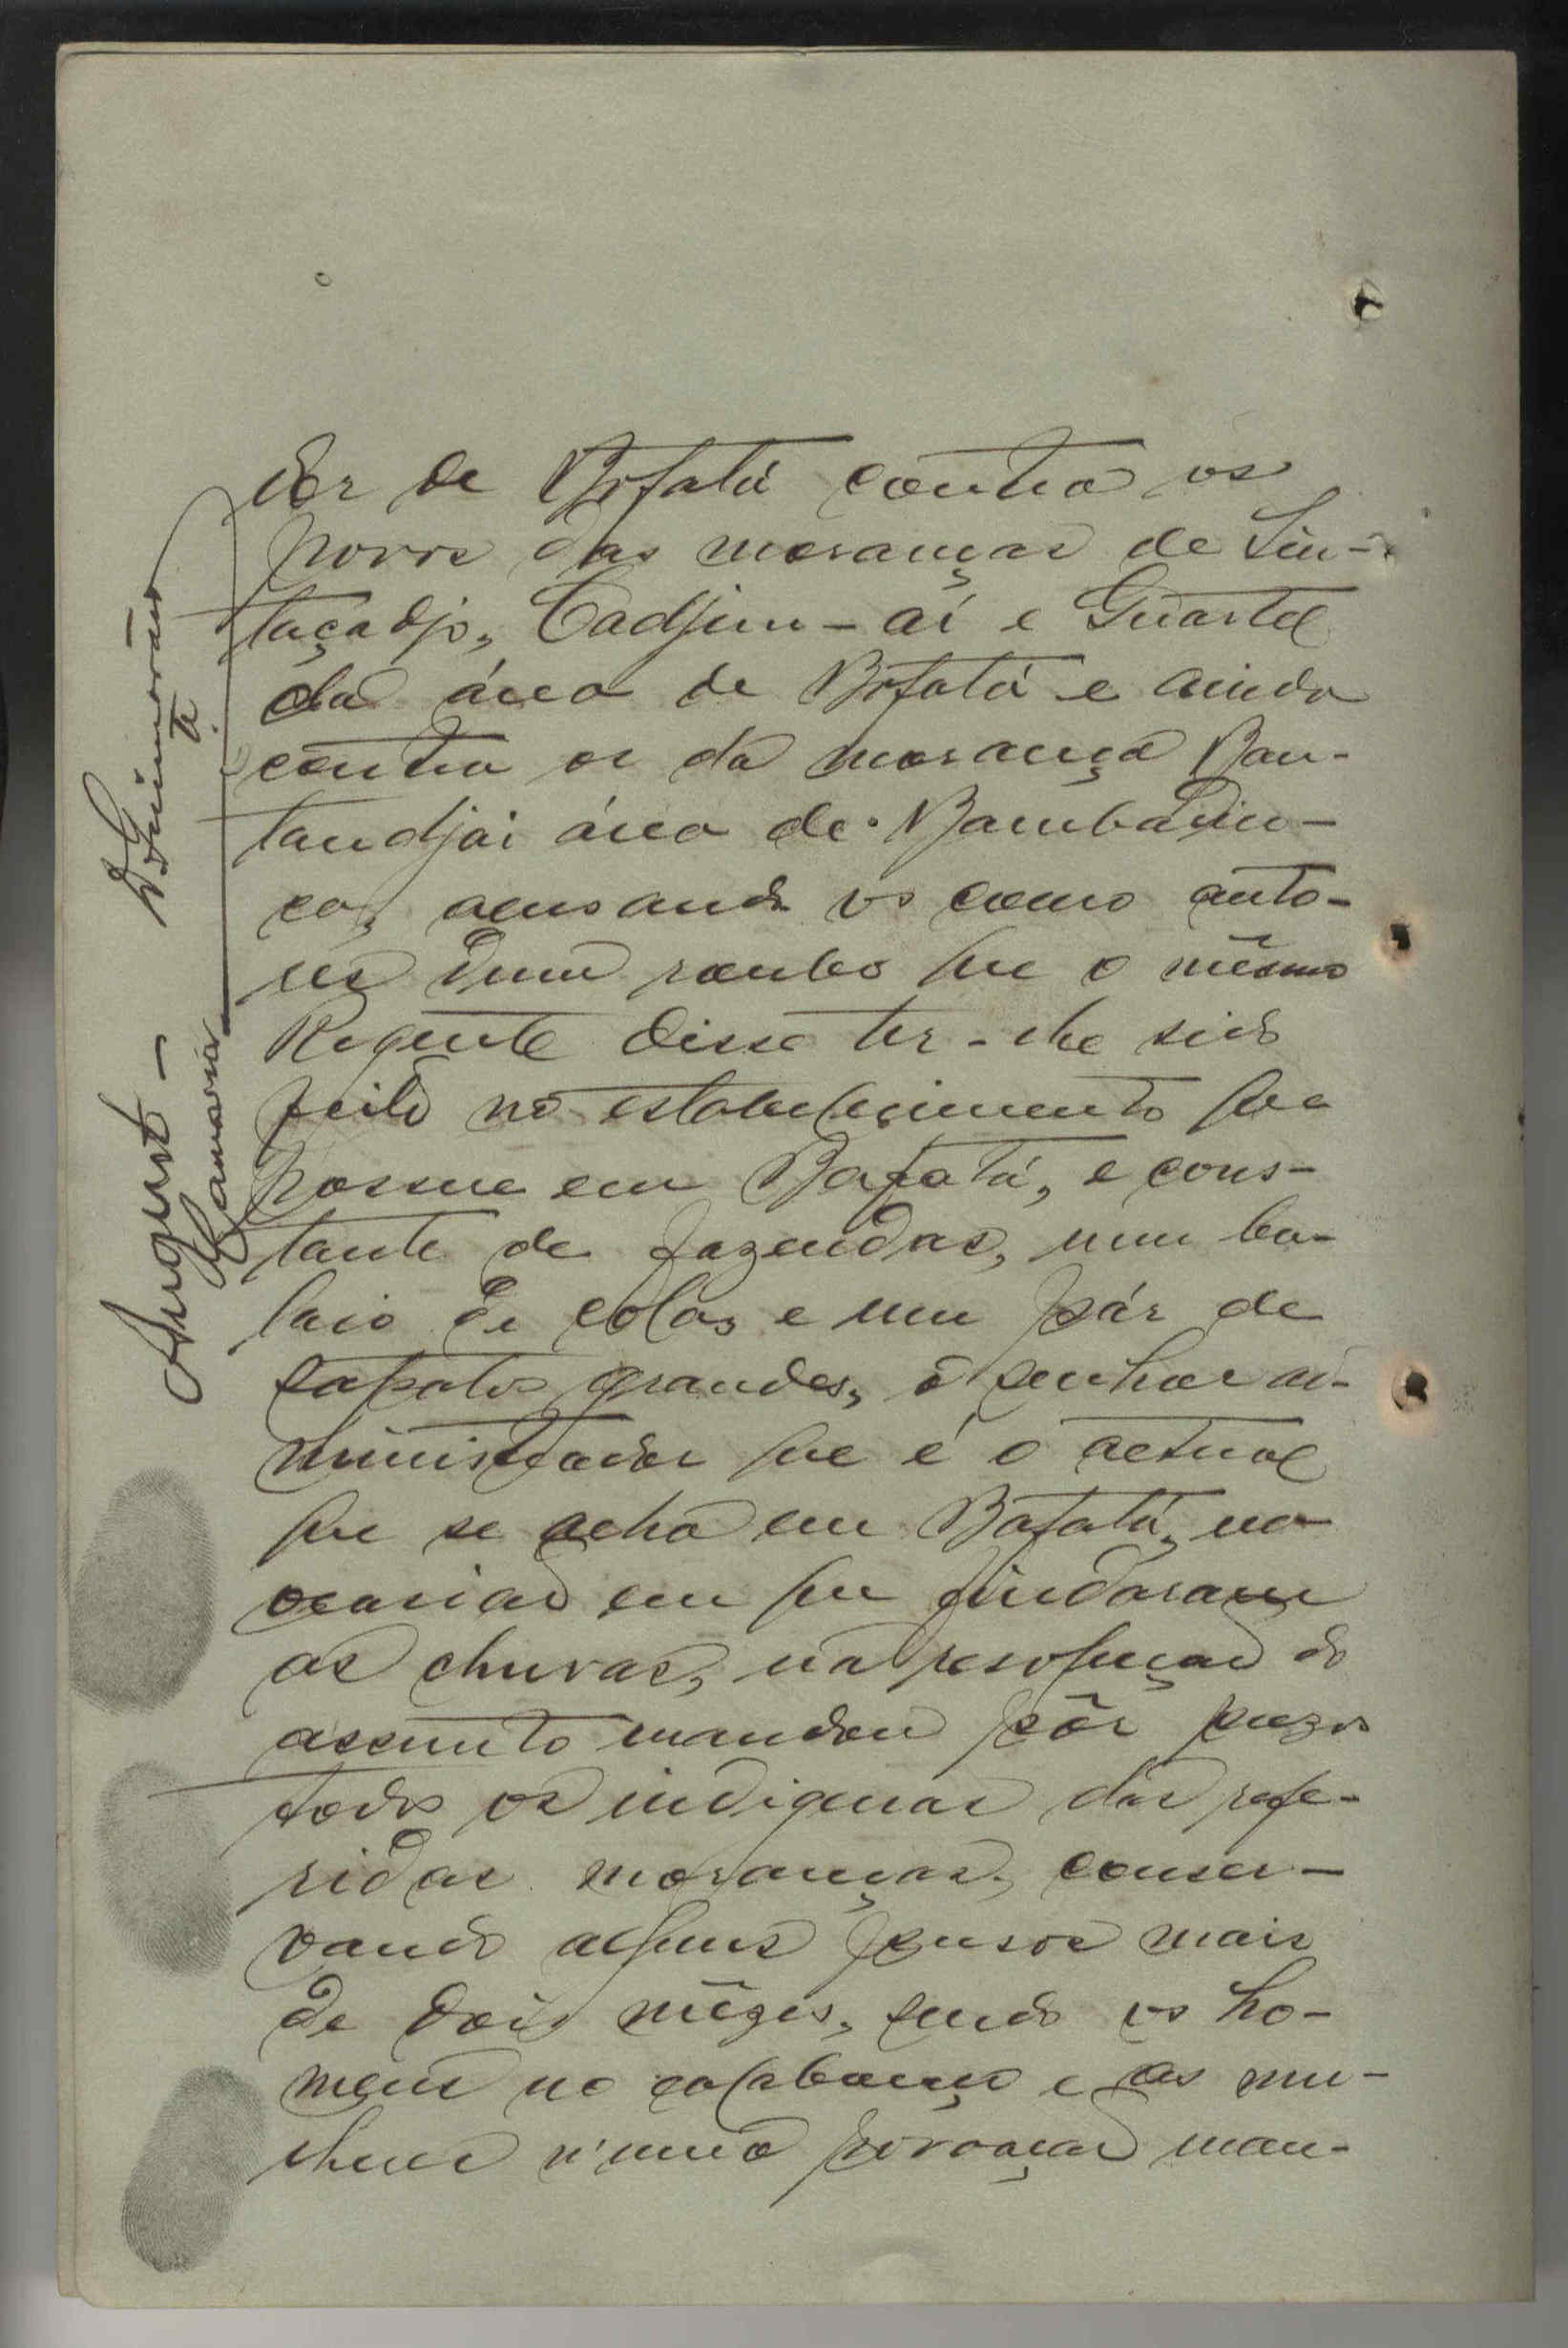 dor de Bafatá contra os
povos das moranças de Sin-
taçadjo, Cadjim-aí e Guartel
da área de Bafatá e ainda
contra os da morança Ban-
tandjai área de Bambadin-
ca, acusando os como auto-
res dum roubo que o mêsmo
Regente disse ter-lhe sido
feito no estabelecimento que
possue em Bafatá, e cons-
tante de fazendas, num ba-
laio de colas e um pár de
sapatos grandes, o senhor ad-
ministrador que é o actual
que se acha em Bafatá, na
ocasião em que findaram
as chuvas, na resolução do
assunto mandou pôr prezos
todos os indigenas das refe-
ridas moranças, conser-
vando alguns prezos mais
de dois mêzes, sendo os ho-
mens no calabouço e as mu-
lheres n'uma povoação man-
August
Guimarães